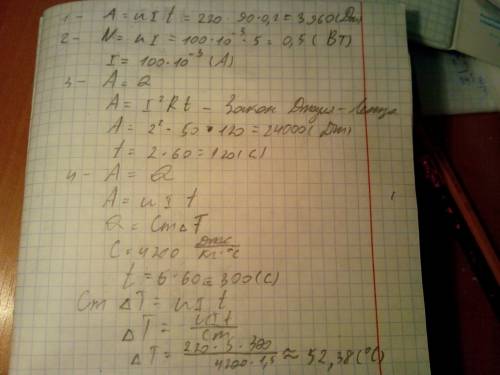 1 - A = u I t = 220 · 90 · 0,2 = 3960 (Дж)
2 - N = u I = 100·10⁻³ · 5 = 0,5 (Вт)
I = 100·10⁻³ (А)
3 - A = Q
A = I²Rt - Закон Джоуля-Ленца
A = 2² · 50 · 120 = 24000 (Дж)
t = 2·60 = 120 (с)
4 - A = Q
A = u I t
Q = Cm△T
C = 4200 Дж/кг·°C
t = 5·60 = 300 (с)
Cm △T = u I t
△T = uIt/cm
△T = 220·5·300/4200·1,5 ≈ 52,38 (°C)